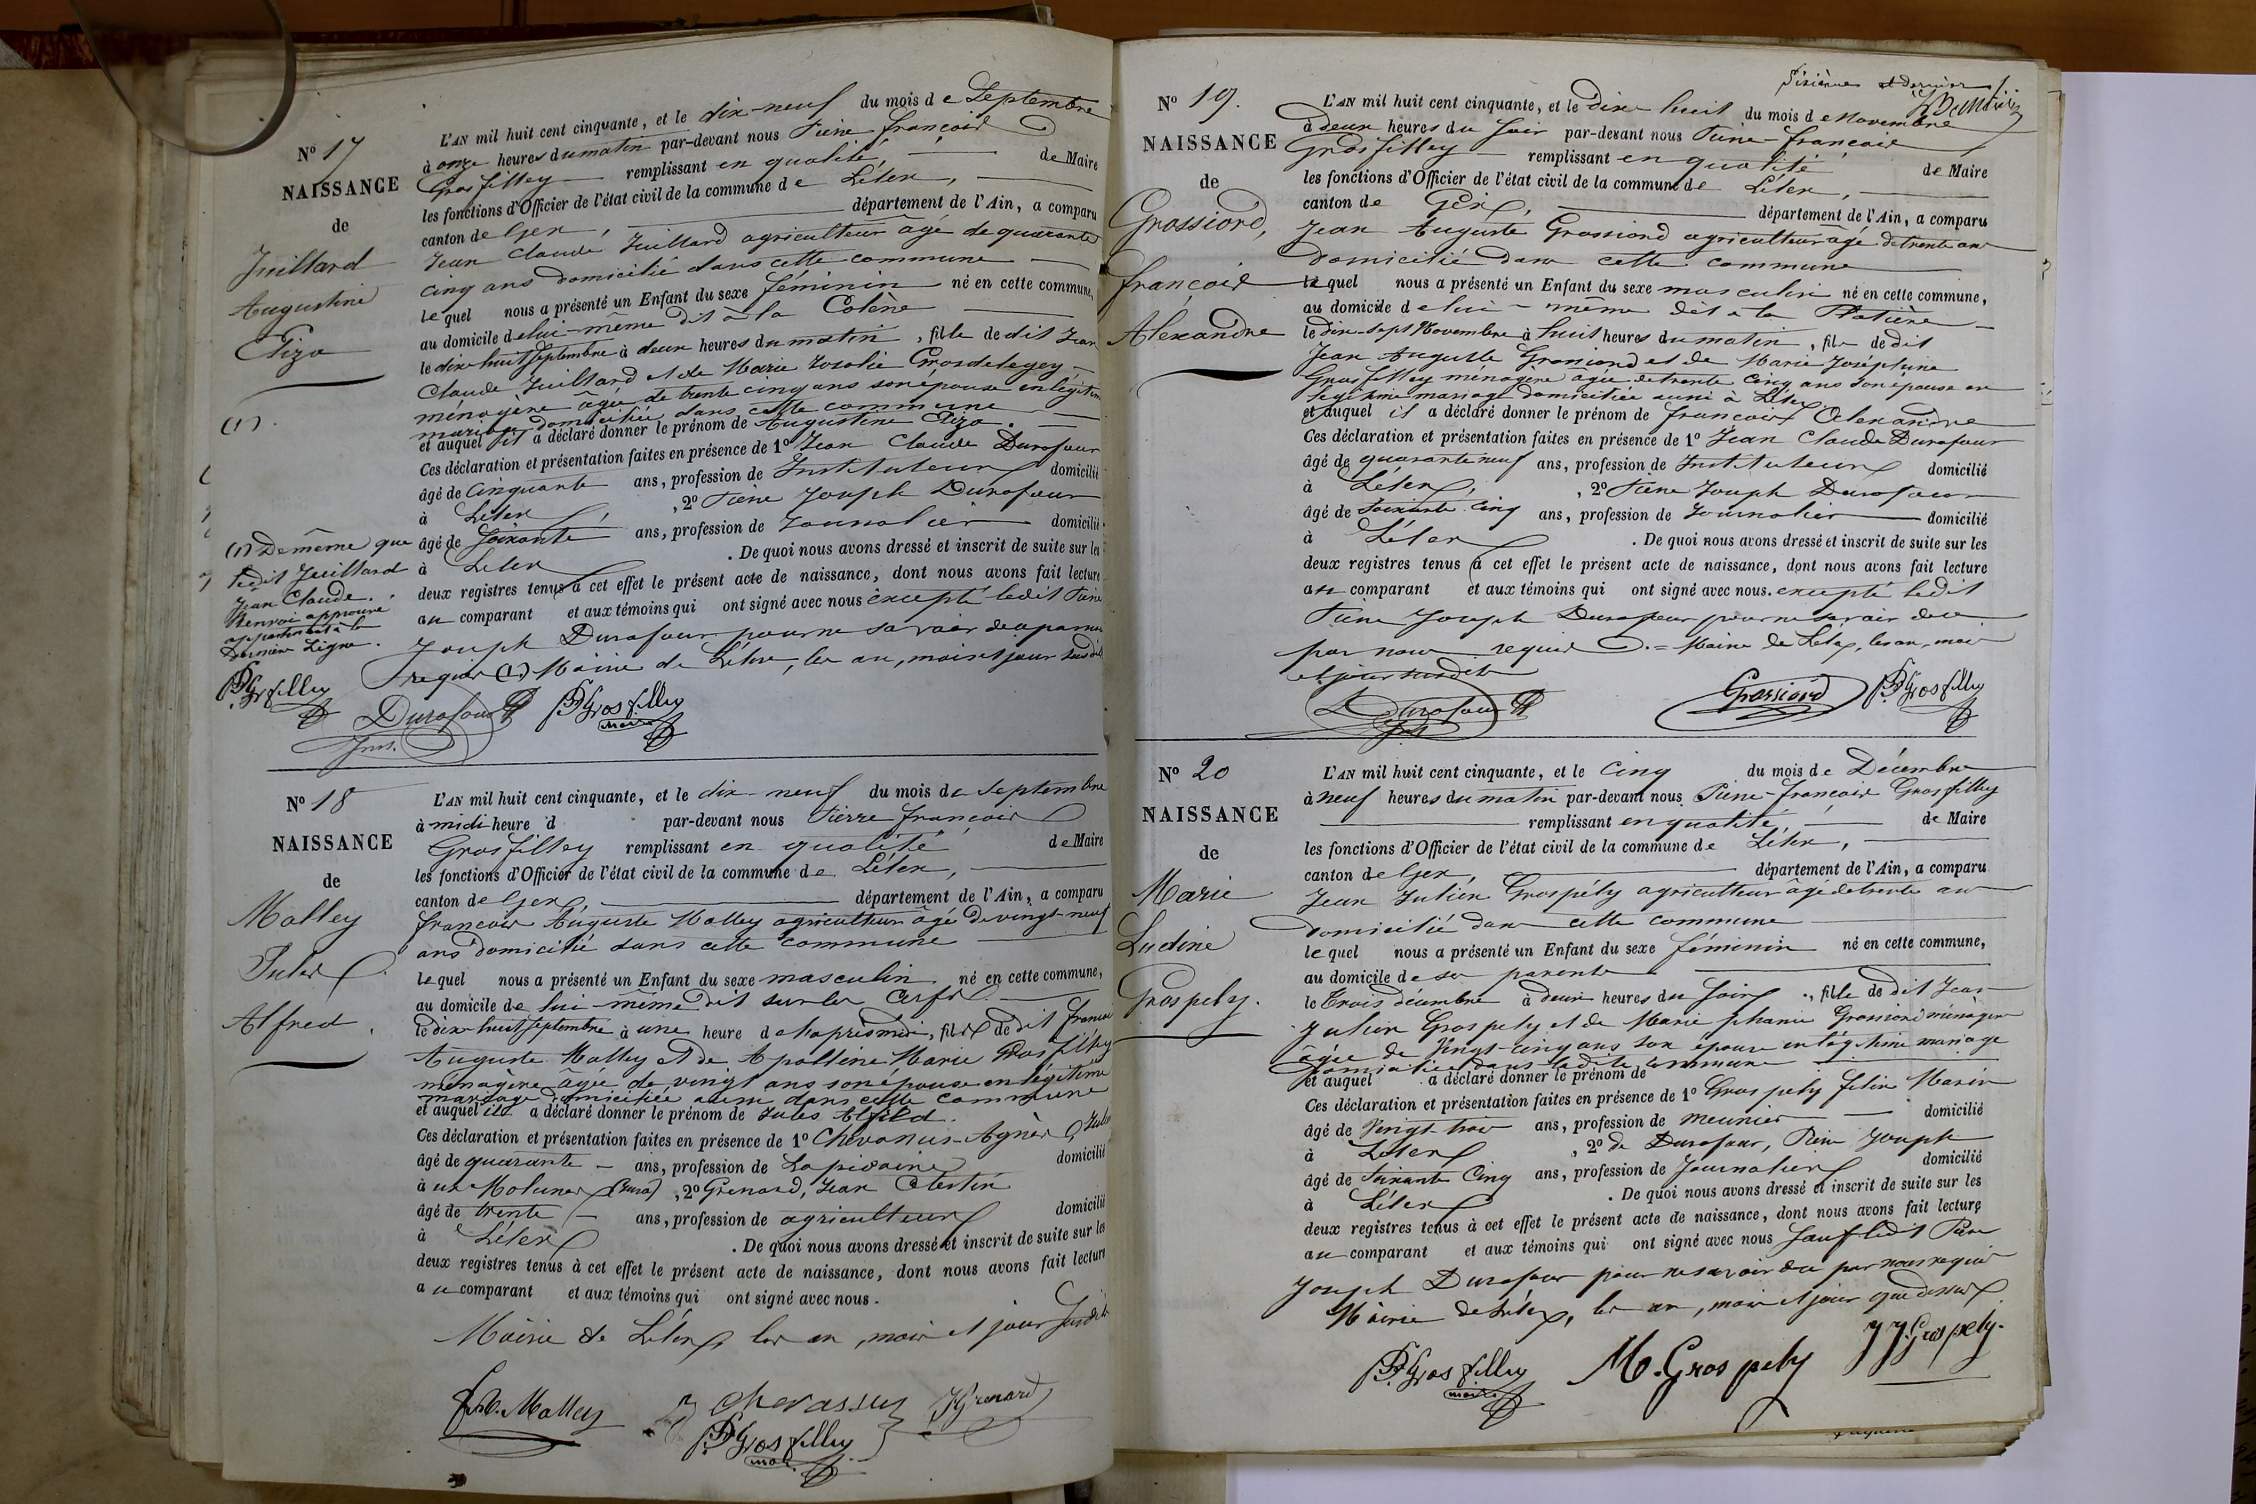 N° 17
NAISSANCE
de
Juillard
Augustine
Eliza
(1).
(1) De même que
ledit Juillard
Jean Claude.
Renvoi approuvé
appartenant à la
dernière Ligne.
PFGrosfilley
L'AN mil huit cent cinquante, et le dix-neuf du mois de Septembre
à onze heures du matin par-devant nous Pierre françois
Grosfilley remplissant en qualité, de Maire
les fonctions d'Officier de l'état civil de la commune de Lélex,
canton de Gex, département de l'Ain, a comparu
Jean Claude Juillard agriculteur âgé de quarante
cinq ans domicilié dans cette commune
lequel nous a présenté un Enfant du sexe féminin né en cette commune,
au domicile de lui-même dit à la
le dix-huit Septembre à deux heures du matin, fille de dit Jean
Claude Juillard et de Marie rosalie Grosdelegey
ménagère âgée de trente cinq ans son épouse en légitime
mariage domiciliée dans cette commune
et auquel il a déclaré donner le prénom de Augustine Eliza.
Ces déclaration et présentation faites en présence de 1° Jean Claude Durafour
âgé de cinquante ans, profession de Instituteur domicilié
à Lélex, 2° Pierre Joseph Durafour
âgé de soixante ans, profession de Journalier domicilié
à Lélex. De quoi nous avons dressé et inscrit de suite sur les
deux registres tenus à cet effet le présent acte de naissance, dont nous avons fait lecture
au comparant et aux témoins qui ont signé avec nous excepté ledit Pierre
Joseph Durafour pour ne savoir de a par nous
requis (1) Mairie de Lélex, les an, mois et jour susdits
Durafour PFGrosfilley
Inst. maire
N° 18
NAISSANCE
de
Molley
Jules
Alfred.
L'AN mil huit cent cinquante, et le dix-neuf du mois de septembre
à midi heure d par-devant nous Pierre françois
Grosfilley remplissant en qualité de Maire
les fonctions d'Officier de l'état civil de la commune de Lélex,
canton de Gex, département de l'Ain, a comparu
françois Auguste Molley agriculteur âgé de vingt-neuf
ans domicilié dans cette commune
lequel nous a présenté un Enfant du sexe masculin né en cette commune,
au domicile de lui-même dit sur la
le dix-huit septembre à une heure de l'après midi, fils de dit françois
Auguste Molley et de Apolline Marie Grosfilley
ménagère âgée de vingt ans son épouse en légitime
mariage domiciliée aussi dans cette commune
et auquel il a déclaré donner le prénom de Jules Alfred.
Ces déclaration et présentation faites en présence de 1° Chevassus-Agnès, Jules
âgé de quarante ans, profession de Lapidaire domicilié
à aux Molunes (Jura), 2° Grenard, Jean Célestin
âgé de trente ans, profession de agriculteur domicilié
à Lélex. De quoi nous avons dressé et inscrit de suite sur les
deux registres tenus à cet effet le présent acte de naissance, dont nous avons fait lecture
au comparant et aux témoins qui ont signé avec nous.
Mairie de Lélex, les an, mois et jour susdits
Molley Chevassus JGrenard
PFGrosfilley
maire
Sixième et dernier f.
N° 19.
NAISSANCE
de
Grossiord,
françois
Alexandre
L'AN mil huit cent cinquante, et le dix huit du mois de Novembre
à deux heures du soir par-devant nous Pierre-françois
Grosfilley remplissant en qualité de Maire
les fonctions d'Officier de l'état civil de la commune de Lélex,
canton de Gex, département de l'Ain, a comparu
Jean Auguste Grossiord agriculteur âgé de trente ans
domicilié dans cette commune
lequel nous a présenté un Enfant du sexe masculin né en cette commune,
au domicile de lui-même dit à la
le dix-sept Novembre à huit heures du matin, fils de dit
Jean Auguste Grossiord et de Marie Joséphine
Grosfilley ménagère âgée de trente cinq ans son épouse en
légitime mariage domiciliée aussi à Lélex
et auquel il a déclaré donner le prénom de françois Alexandre
Ces déclaration et présentation faites en présence de 1° Jean Claude Durafour
âgé de quarante neuf ans, profession de Instituteur domicilié
à Lélex, 2° Pierre Joseph Durafour
âgé de Soixante-cinq ans, profession de Journalier domicilié
à Lélex. De quoi nous avons dressé et inscrit de suite sur les
deux registres tenus à cet effet le présent acte de naissance, dont nous avons fait lecture
au comparant et aux témoins qui ont signé avec nous. excepté ledit
Pierre Joseph Durafour pour ne savoir de ce
par nous requis. = Mairie de Lélex, les an, mois
et jour susdits
Durafour Grossiord PFGrosfilley
N° 20
NAISSANCE
de
Marie
Ludine
Grospély.
L'AN mil huit cent cinquante, et le cinq du mois de Décembre
à neuf heures du matin par-devant nous Pierre-françois Grosfilley
remplissant en qualité de Maire
les fonctions d'Officier de l'état civil de la commune de Lélex,
canton de Gex, département de l'Ain, a comparu
Jean Julien Grospély agriculteur âgé de trente ans
domicilié dans cette commune
lequel nous a présenté un Enfant du sexe féminin né en cette commune,
au domicile de ses parents
le Trois décembre à deux heures du soir, fille de dit Jean
Julien Grospély et de Marie phanie Grossiord ménagère
âgée de Vingt-cinq ans son épouse en légitime mariage
domiciliée dans ladite commune
et auquel a déclaré donner le prénom de
Ces déclaration et présentation faites en présence de 1° Grospély félix Marie
âgé de Vingt-trois ans, profession de meunier domicilié
à Lélex, 2° de Durafour, Pierre Joseph
âgé de Soixante Cinq ans, profession de Journalier domicilié
à Lélex. De quoi nous avons dressé et inscrit de suite sur les
deux registres tenus à cet effet le présent acte de naissance, dont nous avons fait lecture
au comparant et aux témoins qui ont signé avec nous Sauf ledit Pierre
Joseph Durafour pour ne savoir de ce par nous requis
Mairie de Lélex, les an, mois et jour que dessus
PFGrosfilley M. Grospely JJGrospely.
maire